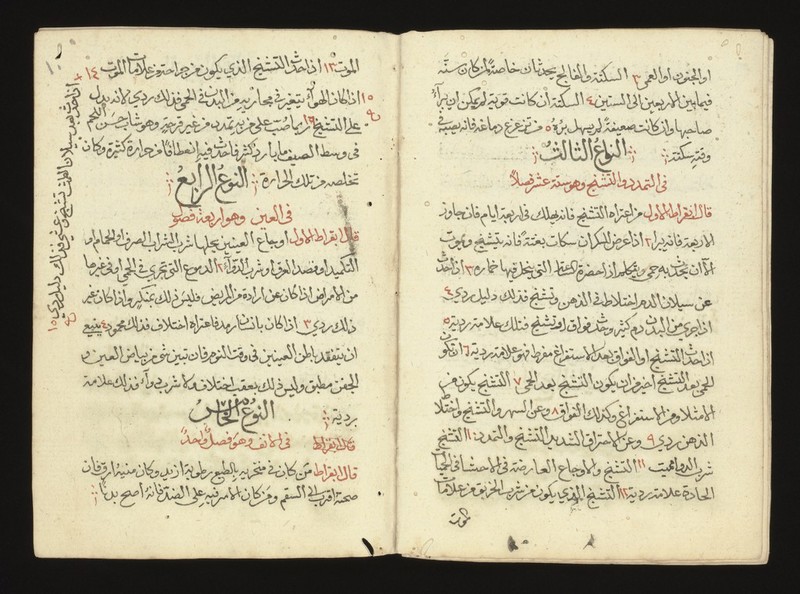 او الجنون او العمى ٣ السكتة والفالج يحدثان خاصة لمن كان سنه
فيما بين الاربعين الى الستين ٤ السكتة ان كانت قوية لم يمكن ان يبرأ
صاحبها وان كانت ضعيفة لم يسهل برؤه ٥ من تزعزع دماغه فانه يصيبه في
وقته سكتة
النوع الثالث
في التمدد والتشنج وهو ستة عشر فصلا
قال ابقراط الاول من اعتراه التشنج فانه يهلك في اربعة ايام فان جاوز
الاربعة فانه يبرا ٢ اذا عرض للسكران سكات بغتة فانه يتشنج ويموت
الا ان يحدث به حمى او يتكلم اذا حضرت الساعة التي ينحل فيها خماره ٣ اذا حدث
عن سيلان الدم اختلاط في الذهن وتشنج فذلك دليل ردي ٤
اذا جري من البدن دم كثير وحدث فواق او تشنج فتلك علامة ردية ٥
اذا حدث التشنج او الفواق بعد الاستفراغ مفرط فهو علامة ردية ٦ ان تكون
الحمى بعد التشنج اخير من ان يكون التشنج بعد الحمى ٧ التشنج يكون من
الامتلاء ومن الاستفراغ وكذلك الفواق ٨ وعن السهر والتشنج واختلاط
الذهن ردي ٩ وعن الاحتراق الشديد التشنج والتمدد ١٠ التشنج
شرب الدواء مميت ١١ التشنج والاوجاع العارضة في الاحشا في الحميات
الحادة علامة ردية ١٢ التشنج الذي يكون من شرب الخربق من علامات
الموت
الموت ١٣ اذا حدث التشنج الذي يكون من جراحة من علامات الموت ١٤
اذا كان الهواء يتغير في مجاريه من البدن في الحمى فذلك ردي لانه يدل
على التشنج ١٦ ربما صب على من به تمدد من غير قرحة وهو شاب حسن اللحم
في وسط الصيف ماء بارد كثير فاحدث فيه انعطافا من حرارة كثيرة وكان
تخلصه من تلك الحرارة
النوع الرابع
في العين وهو اربعة فصول
قال ابقراط الاول اوجاع العينين يحلها شرب الشراب الصرف او الحمام او
التكميد او فصد العرق او شرب الدواء ٢ الدموع التي تجري في الحمى او في غيرها
من الامراض اذا كان عن ارادة من المريض فليس ذلك بمنكر واذا كان غير
ذلك ردي ٣ اذا كان بانسان رمد فاعتراه اختلاف فذلك محمود ٤ ينبغي
ان يتفقد باطن العينين في وقت النوم فان تبين شي من بياض العين و
الجفن مطبق وليس ذلك بعقب اختلاف ولا شرب دواء فذلك علامة
ردية
النوع الخامس
قال ابقراط في الانف وهو فصل واحد
قال ابقراط من كان في منخريه بالطبع رطوبة ازيد وكان منيه ارق فان
صحته اقرب الى السقم ومن كان الامر فيه على الضد فانه اصح بدنا